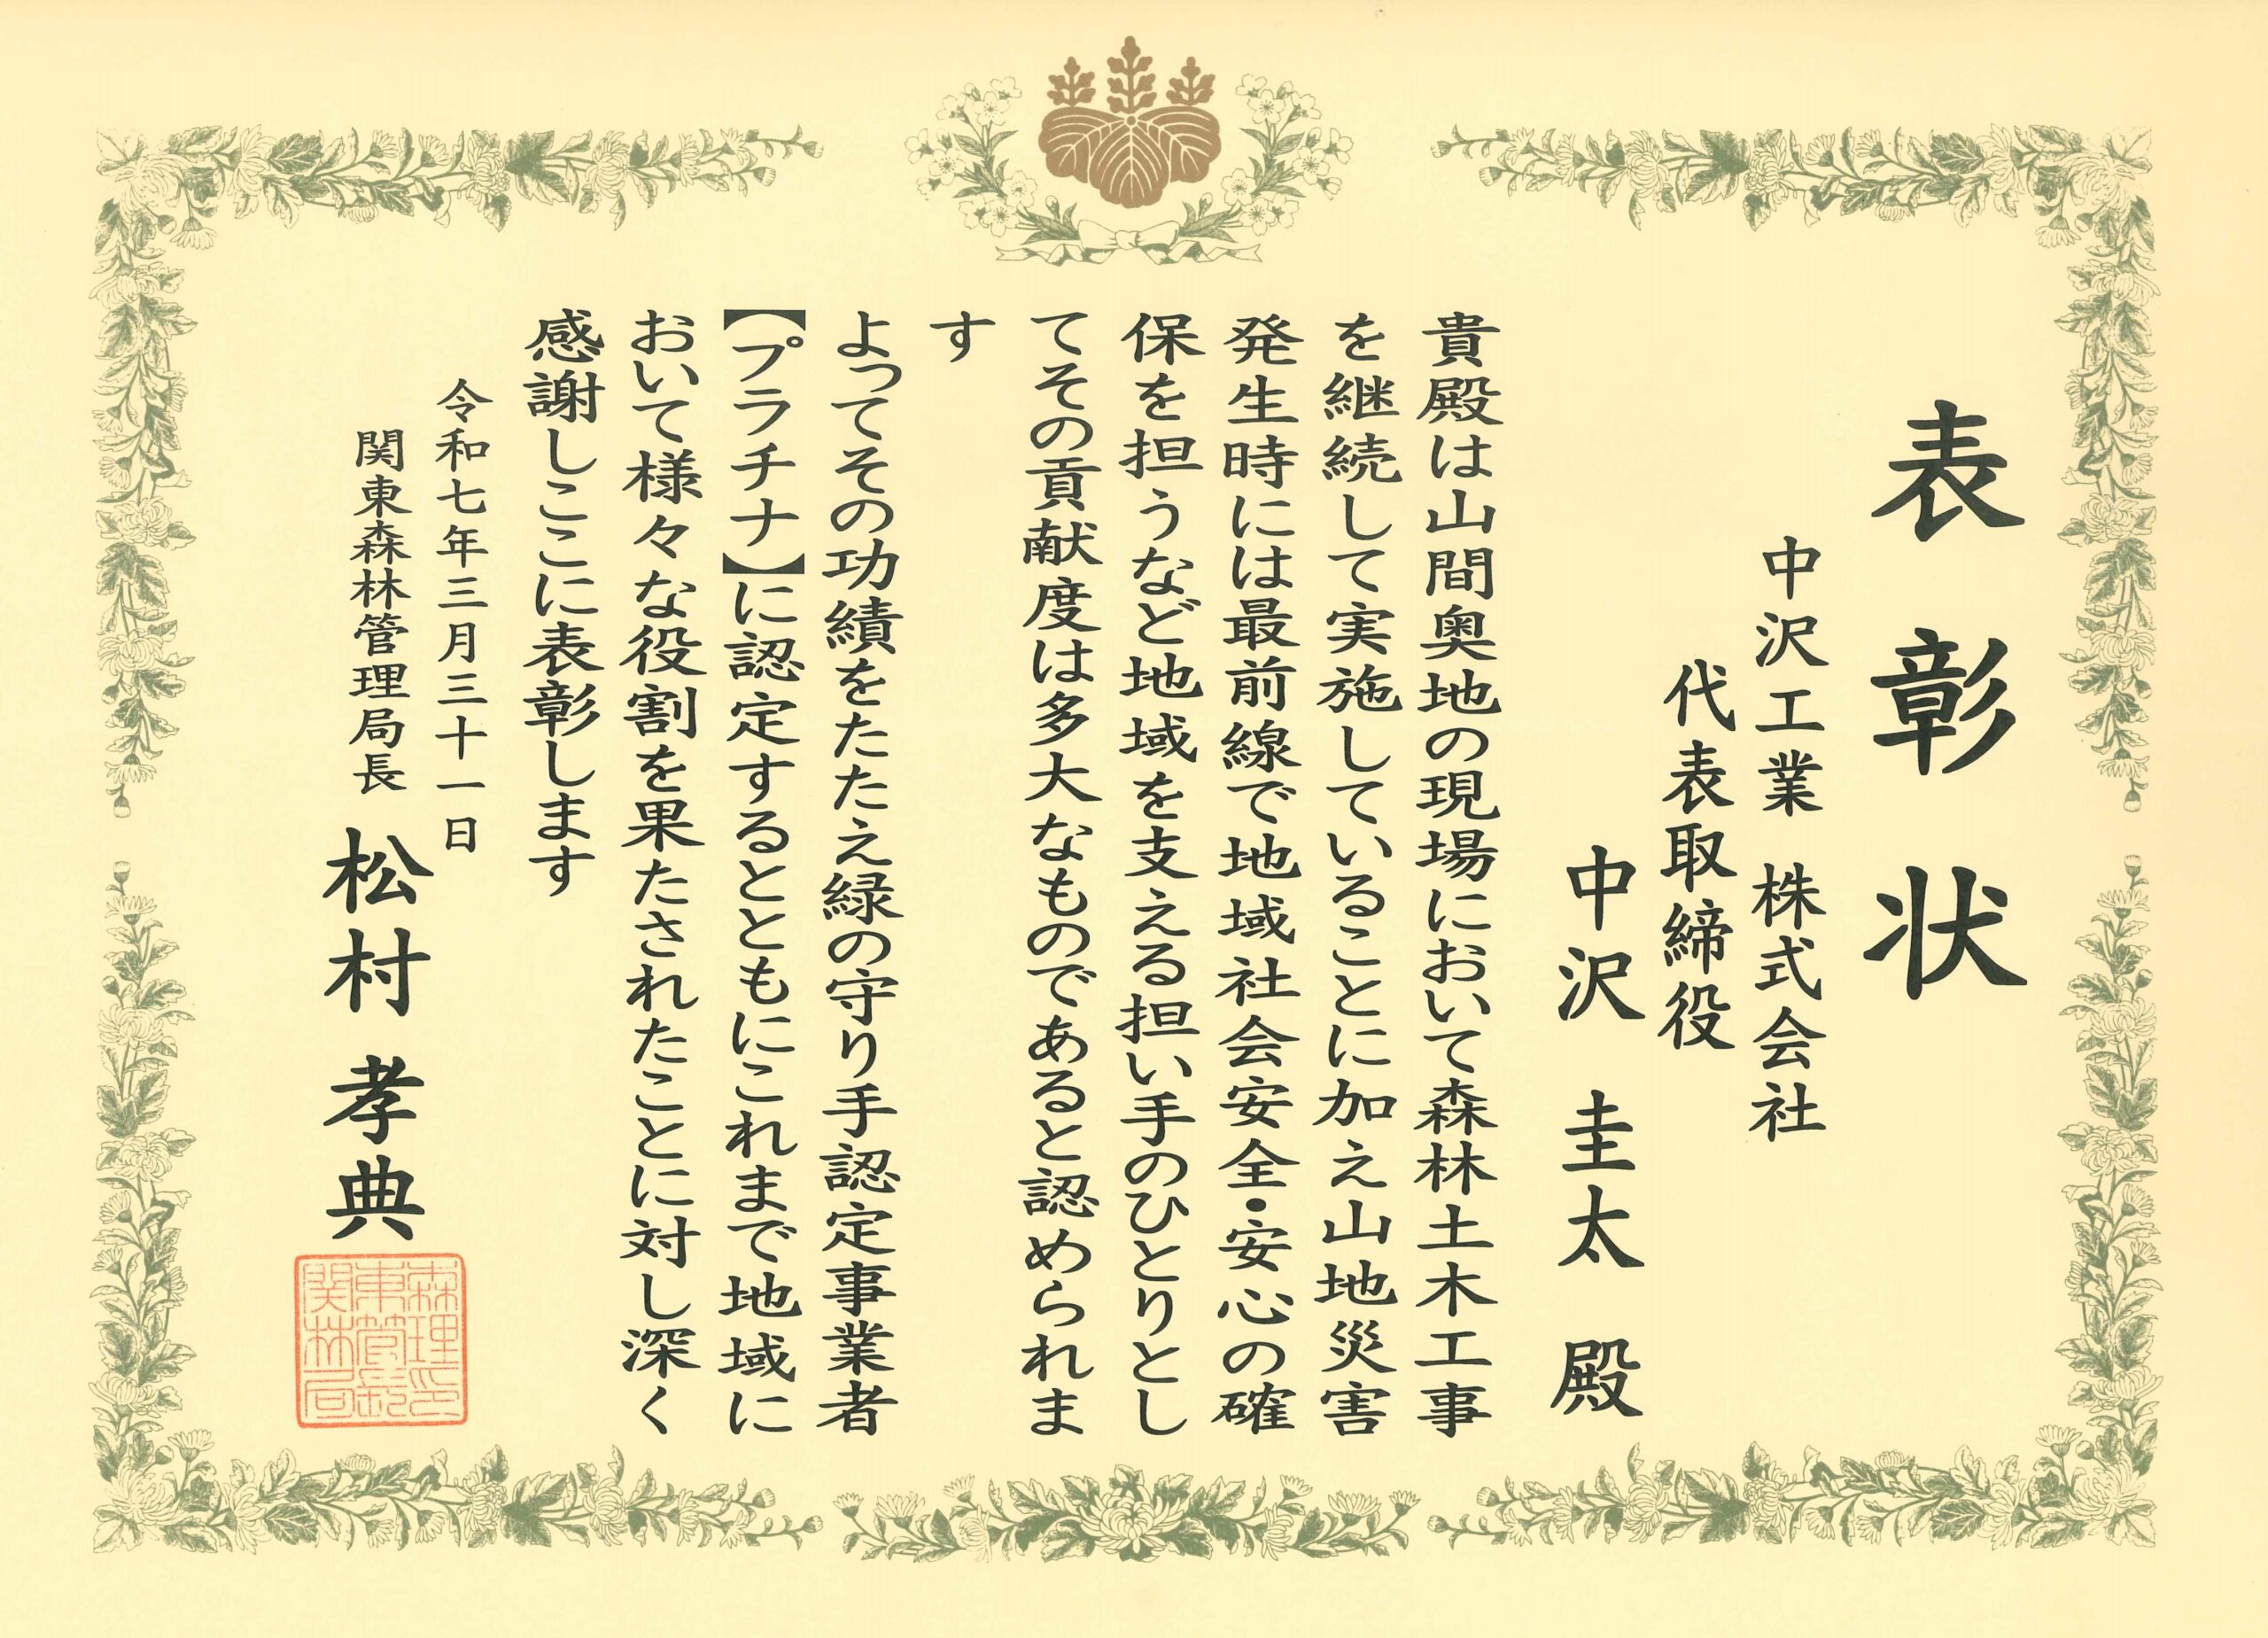 表彰状
中沢工業 株式会社
代表取締役
中沢 圭太 殿
貴殿は山間奥地の現場において森林土木工事
を継続して実施していることに加え山地災害
発生時には最前線で地域社会安全・安心の確
保を担うなど地域を支える担い手のひとりとし
てその貢献度は多大なものであると認められま
す
よってその功績をたたえ緑の守り手認定事業者
【プラチナ】に認定するとともにこれまで地域に
おいて様々な役割を果たされたことに対し深く
感謝しここに表彰します
令和七年三月三十一日
関東森林管理局長 松村 孝典
森理印
東管長
関林局